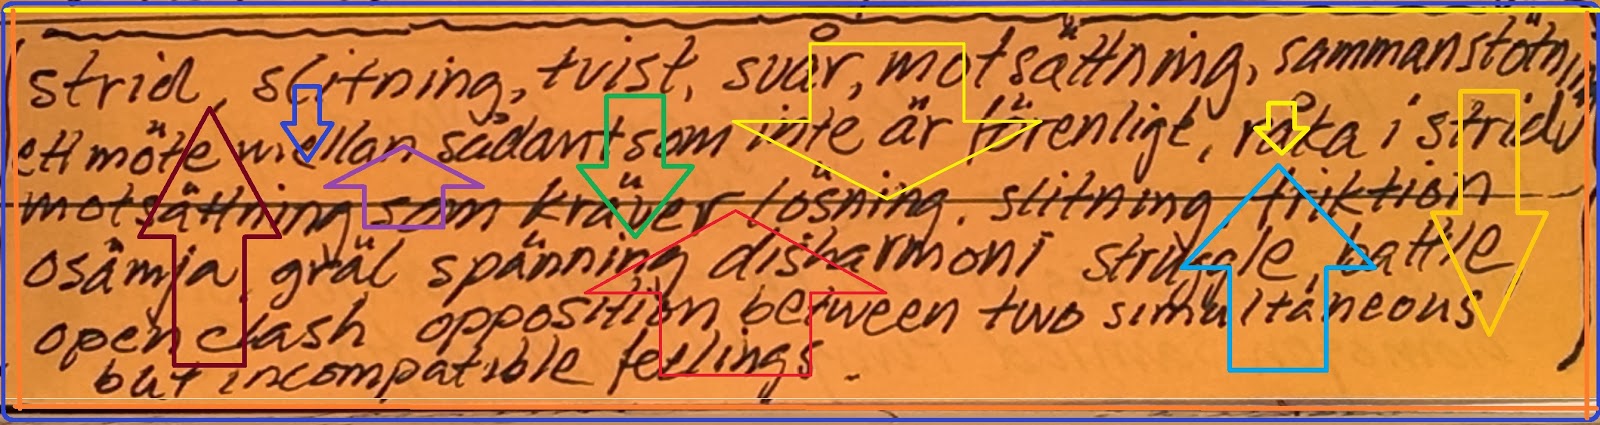 strid, slitning, tvist, svår, motsättning, sammanstötnin
ett möte mellan sådant som inte är förenligt, råka i strid
motsättning som kräver lösning. slitning friktion
osämja, gräl spänning disharmoni struggle, battle,
open clash opposition between two simultaneous
but incompatible feelings.